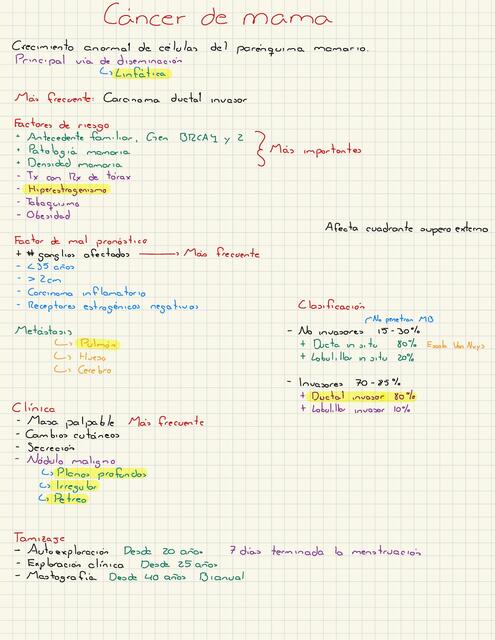 Cáncer de mama
Crecimiento anormal de células del parénquima mamario.
Principal vía de diseminación
↳ Linfática
Más frecuente: Carcinoma ductal invasor
Factores de riesgo
+ Antecedente familiar, Gen BRCA1 y 2
+ Patología mamaria
+ Densidad mamaria
Más importantes
- Tx con Rx de tórax
- Hiperestrogenismo
- Tabaquismo
- Obesidad
Afecta cuadrante supero externo
Factor de mal pronóstico
+ # ganglios afectados → Más frecuente
- <35 años
- > 2cm
- Carcinoma inflamatorio
- Receptores estrogénicos negativos
Metástasis
↳ Pulmón
↳ Hueso
↳ Cerebro
Clasificación
No penetran MB
- No invasores 15-30%
+ Ducta in situ 80% Escala Van Nuys
+ Lobulillar in situ 20%
- Invasores 70-85%
+ Ductal invasor 80%
+ Lobulillar invasor 10%
Clínica
- Masa palpable Más frecuente
- Cambios cutáneos
- Secreción
- Nódulo maligno
↳ Planos profundos
↳ Irregular
↳ Pétreo
Tamizaje
- Autoexploración Desde 20 años 7 días terminada la menstruación
- Exploración clínica Desde 25 años
- Mastografía Desde 40 años Bianual